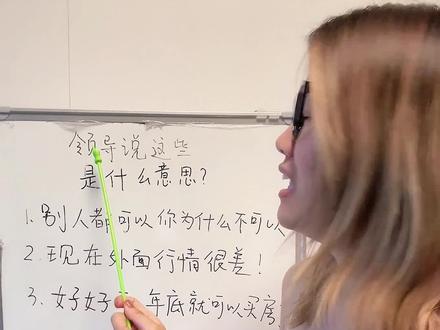 领导说这些
是什么意思?
1. 别人都可以你为什么不可以
2. 现在外面行情很差!
3. 好好 年底就可以买房